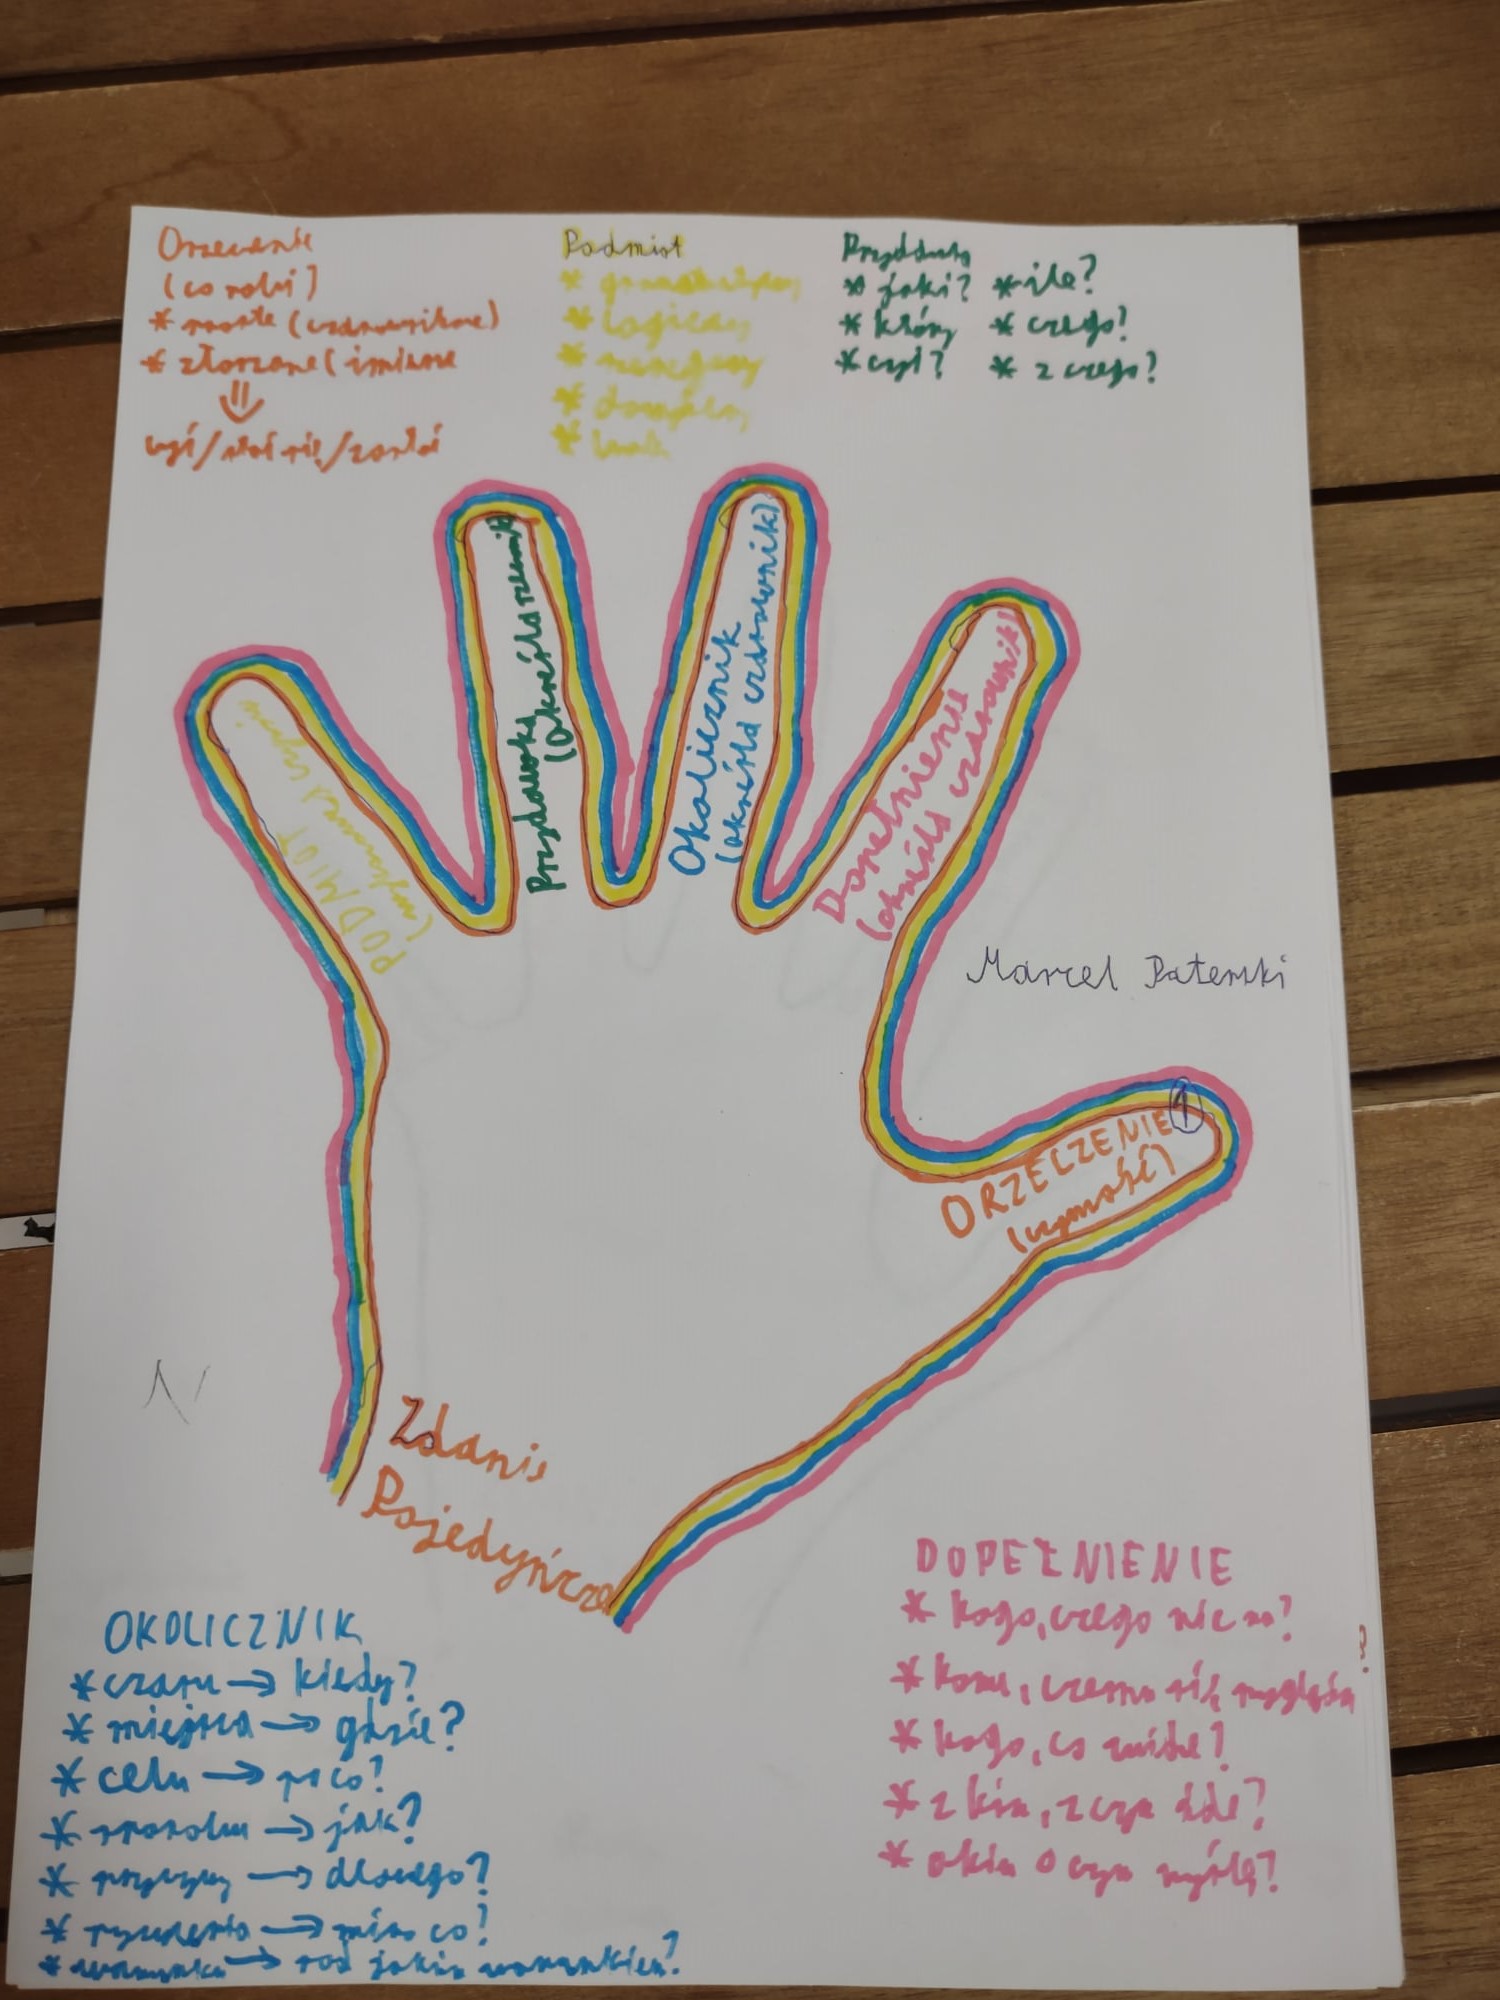 Orzeczenie
(co robi)
* proste (czasownikowe)
* złorzone (imienne
być/stać się/zostać
Podmiot
* gramatyczny
* logiczny
* szeregowy
* domyślny
* brak
Przydawka
* jaki? * ile?
* który * czego?
* czyi? * z czego?
PODMIOT
(wykonawca czynnoś
Przydawka
(określa rzeczownik
Okolicznik
(określa czasownik)
Dopełnienie
(określa czasownik)
Marcel Paterski
1
ORZECZENIE
(czynność)
Zdanie
Pojedyńcze
OKOLICZNIK
* czasu → kiedy?
* miejsca → gdzie?
* celu → po co?
* sposobu → jak?
* przyczyny → dlaczego?
* przyzwolenia → mimo co?
* warunku → pod jakim warunkiem?
DOPEŁNIENIE
* kogo, czego nie ma?
* komu, czemu się przyglądam
?
* kogo, co widzę?
* z kim, z czym idę?
* o kim o czym myślę?